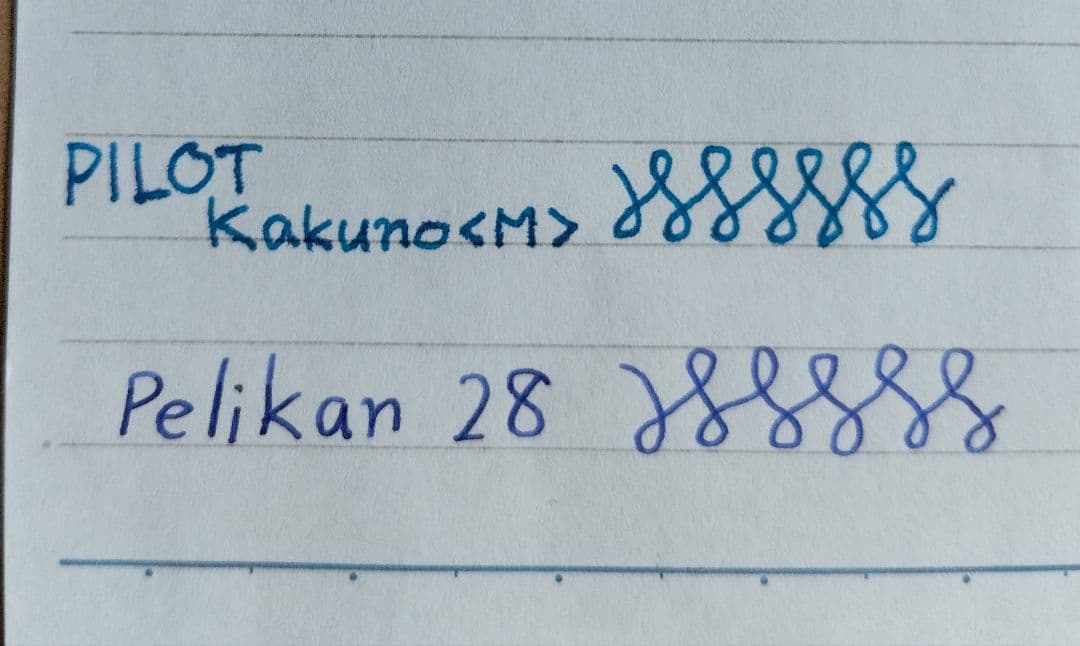 PILOT
Kakuno<M>
Pelikan 28